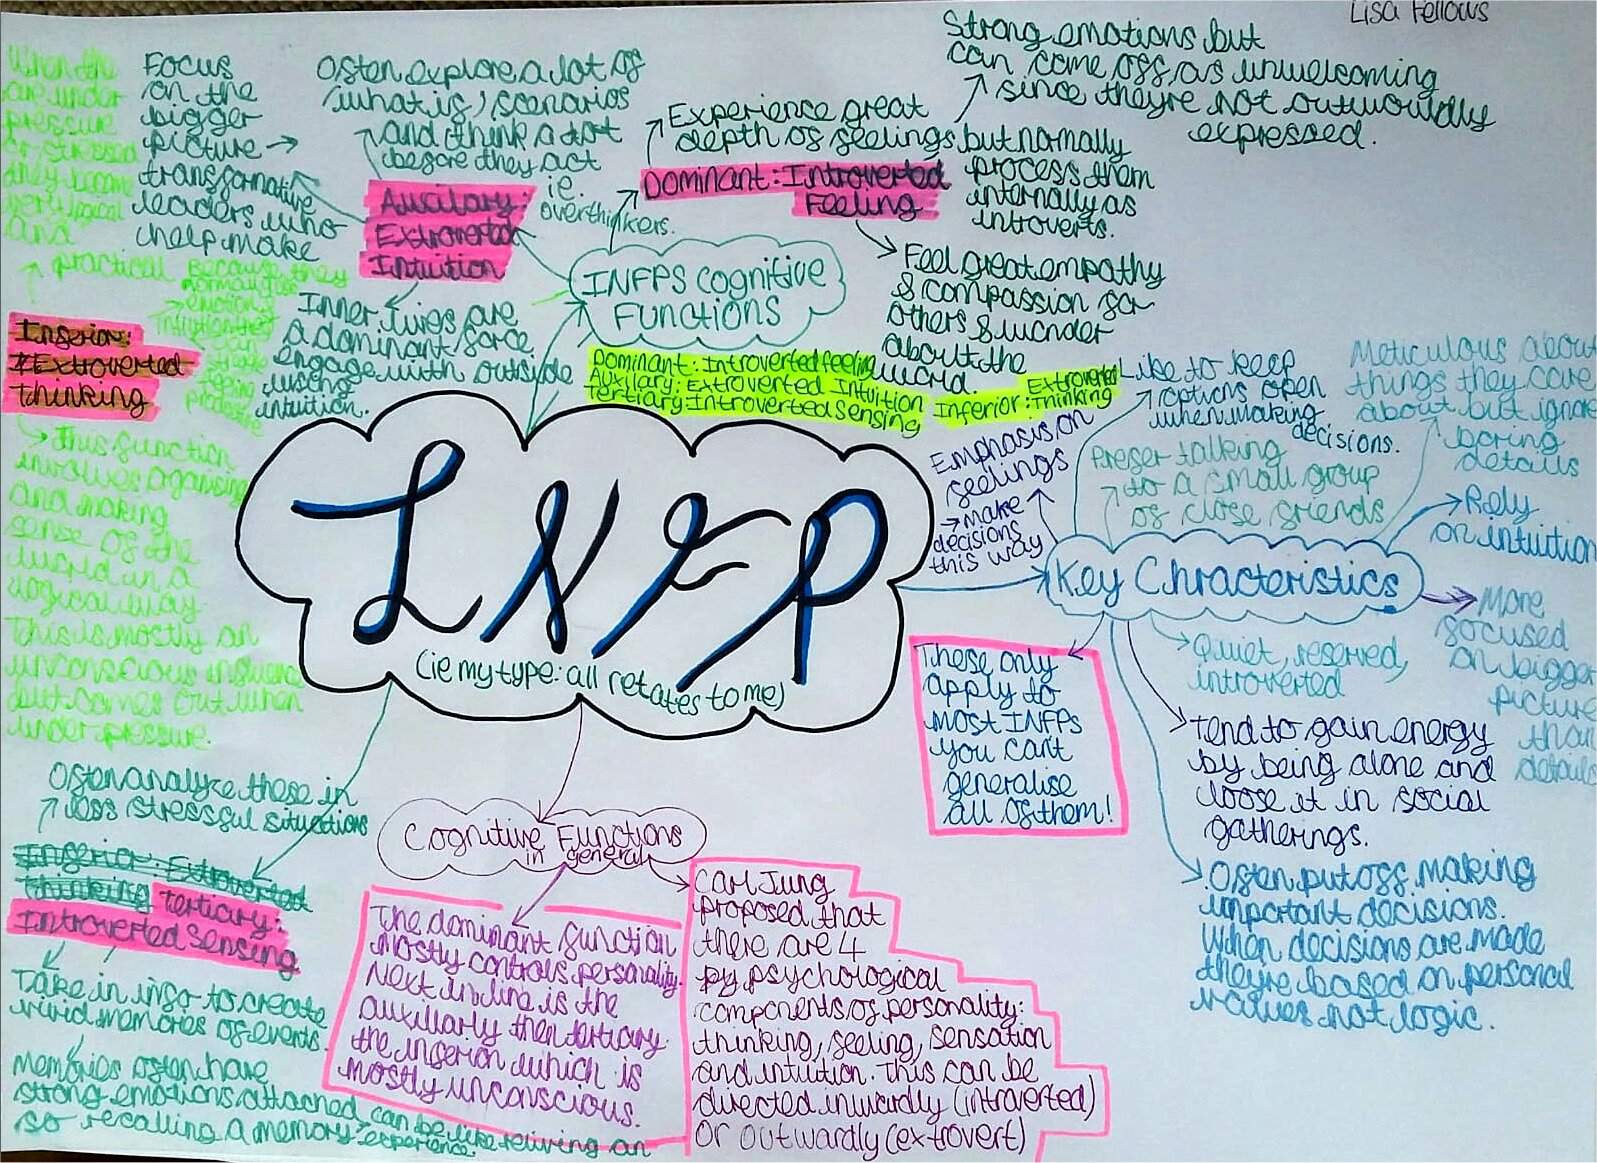 Lisa Fellows
Strong emotions but
can come off as unwelcoming
since theyre not outwordly
expressed.
Experience great
depth of feelings but normally
process them
internally as
introverts.
Dominant: Introverted
Feeling
Feel great empathy
& compassion for
others & wonder
about the
world.
INFPS cognitive
Functions
Often explore a lot of
'what is' scenarios
and think a lot
before they act
ie.
overthinkers.
Auxilary:
Extroverted
Intuition
Focus
on the
bigger
picture →
transformative
leaders who
help make
Inner lives are
a dominant force
engage with outside
using
intuition.
When the
are under
pressure
or stressed
they become
very logical
and
practical because they
normally use
emotions
Inferior:
Extroverted
thinking
This function
involves organising
and making
sense of the
world in a
logical way
This is mostly an
unconscious influence
but comes out when
under pressure.
Dominant: Introverted feeling
Auxilary: Extroverted Intuition
Tertiary: Introverted Sensing
Inferior: Extroverted
Thinking
INFP
(ie my type: all relates to me)
Key Chracteristics
Emphasis on
feelings
→ make
decisions
this way
Like to keep
options open
when making
decisions.
Prefer talking
to a small group
of close friends
Meticulous about
things they care
about but ignore
boring
details
Rely
on intuition
More
focused
on bigger
picture
than
details
Quiet, reserved,
introverted
tend to gain energy
by being alone and
loose it in social
gatherings.
Often put off making
important decisions.
When decisions are made
they're based on personal
values not logic.
These only
apply to
most INFPs
you can't
generalise
all of them!
Often analyze these in
less stressful situations
Inferior: Extroverted
thinking tertiary:
Introverted Sensing
Take in info to create
vivid memories of events.
Memories often have
strong emotions attached
so recalling a memory can be like reliving an
experience.
Cognitive Functions
in general
The dominant function
mostly controls personality.
Next in line is the
auxillarly then tertiary
the inferion which is
mostly unconscious.
Carl Jung
proposed that
there are 4
psychological
components of personality:
thinking, feeling, sensation
and intuition. This can be
directed inwardly (introverted)
or outwardly (extrovert)